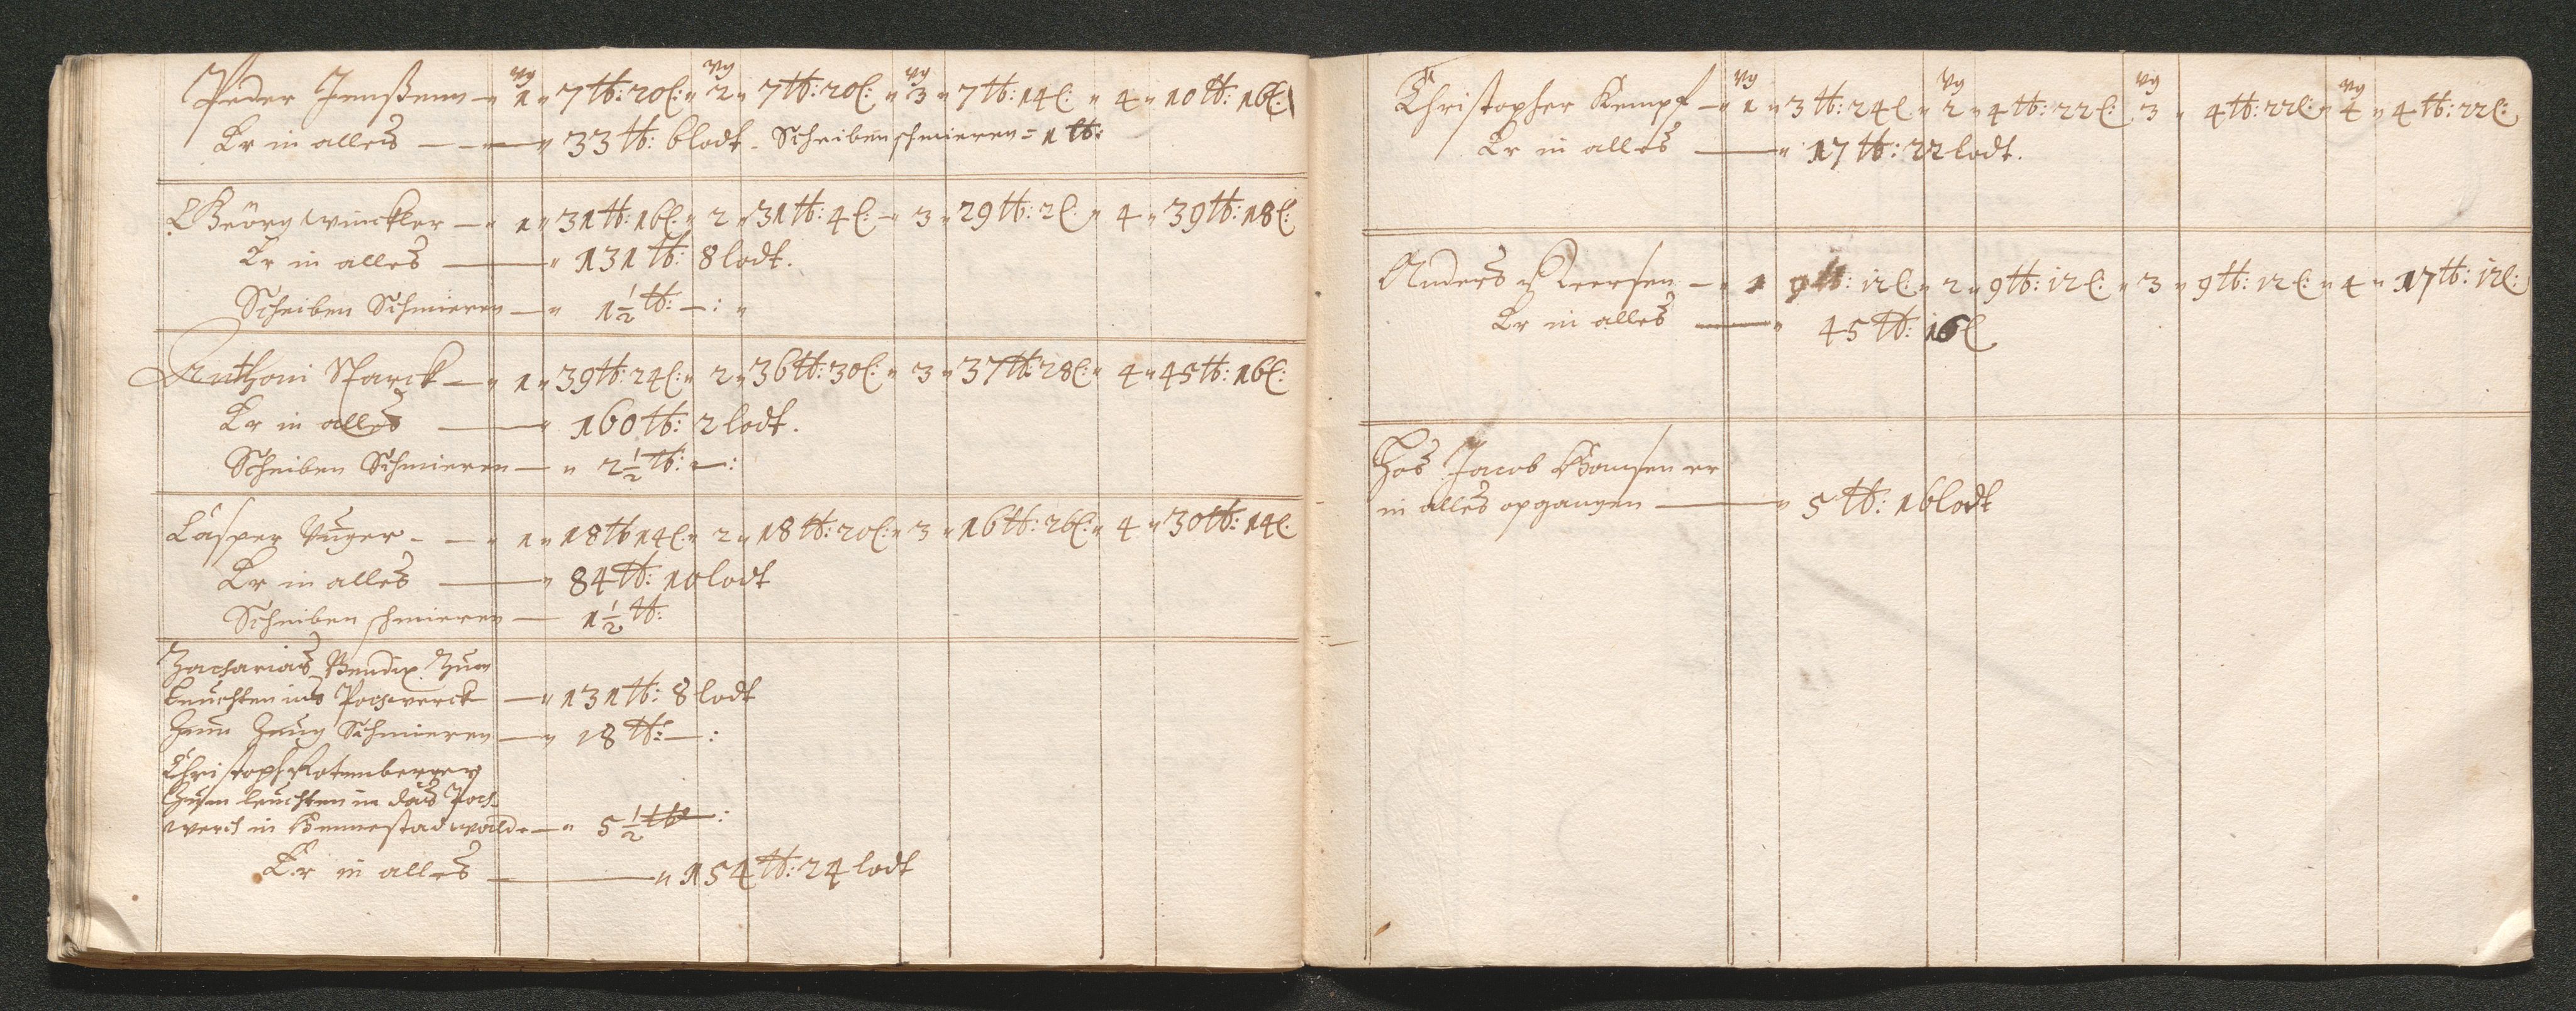 vg vg vg
Peder Jenßenn — 1 " 7 ℔: 20 l: " 2 " 7 ℔: 20 l: " 3 " 7 ℔: 14 l: " 4 " 10 ℔: 16 l:
Er in alles — — " 33 ℔: 6 lodt - Scheiben schmieren = 1 ℔:
Geörg Winckler — " 1 " 31 ℔: 16 l: " 2 " 31 ℔: 4 l: — " 3 " 29 ℔: 2 l: " 4 " 39 ℔: 18 l:
Er in alles — " 131 ℔: 8 lodt.
Scheiben Schmieren — " 1 1/2 ℔: — : "
Anthoni Starck — " 1 " 39 ℔: 24 l: " 2 " 36 ℔: 30 l: " 3 " 37 ℔: 28 l: " 4 " 45 ℔: 16 l:
Er in alles — " 160 ℔: 2 lodt.
Scheiben Schmieren — " 2 1/2 ℔: — :
Casper Unger - — " 1 " 18 ℔ 14 l: " 2 " 18 ℔: 20 l: " 3 " 16 ℔: 26 l: " 4 " 30 ℔: 14 l.
Er in alles — " 84 ℔: 10 lodt
Scheiben schmieren — 1 1/2 ℔:
Zacharias Bendix. Zum
Leuchten ins Pochwerck — " 131 ℔: 8 lodt
Zum Zeug Schmieren — " 18 ℔: — :
Christoph Rotenberger
Zum leuchten in das Poch-
werch in — " 5 1/2 ℔ — :
Er in alles — " 154 ℔: 24 lodt
vg vg vg vg
Christopher Kempf — " 1 " 3 ℔: 24 l " 2 " 4 ℔: 22 l: 3 " 4 ℔: 22 l: " 4 " 4 ℔: 22 l:
Er in alles — " 17 ℔: 22 lodt.
Anders Iversen — " 1 9 ℔: 12 l: " 2 " 9 ℔: 12 l: " 3 " 9 ℔: 12 l: " 4 " 17 ℔: 12 l:
Er in alles — " 45 ℔: 16 l
Hos Jacob Hansen er
in alles opgangen — " 5 ℔: 16 lodt